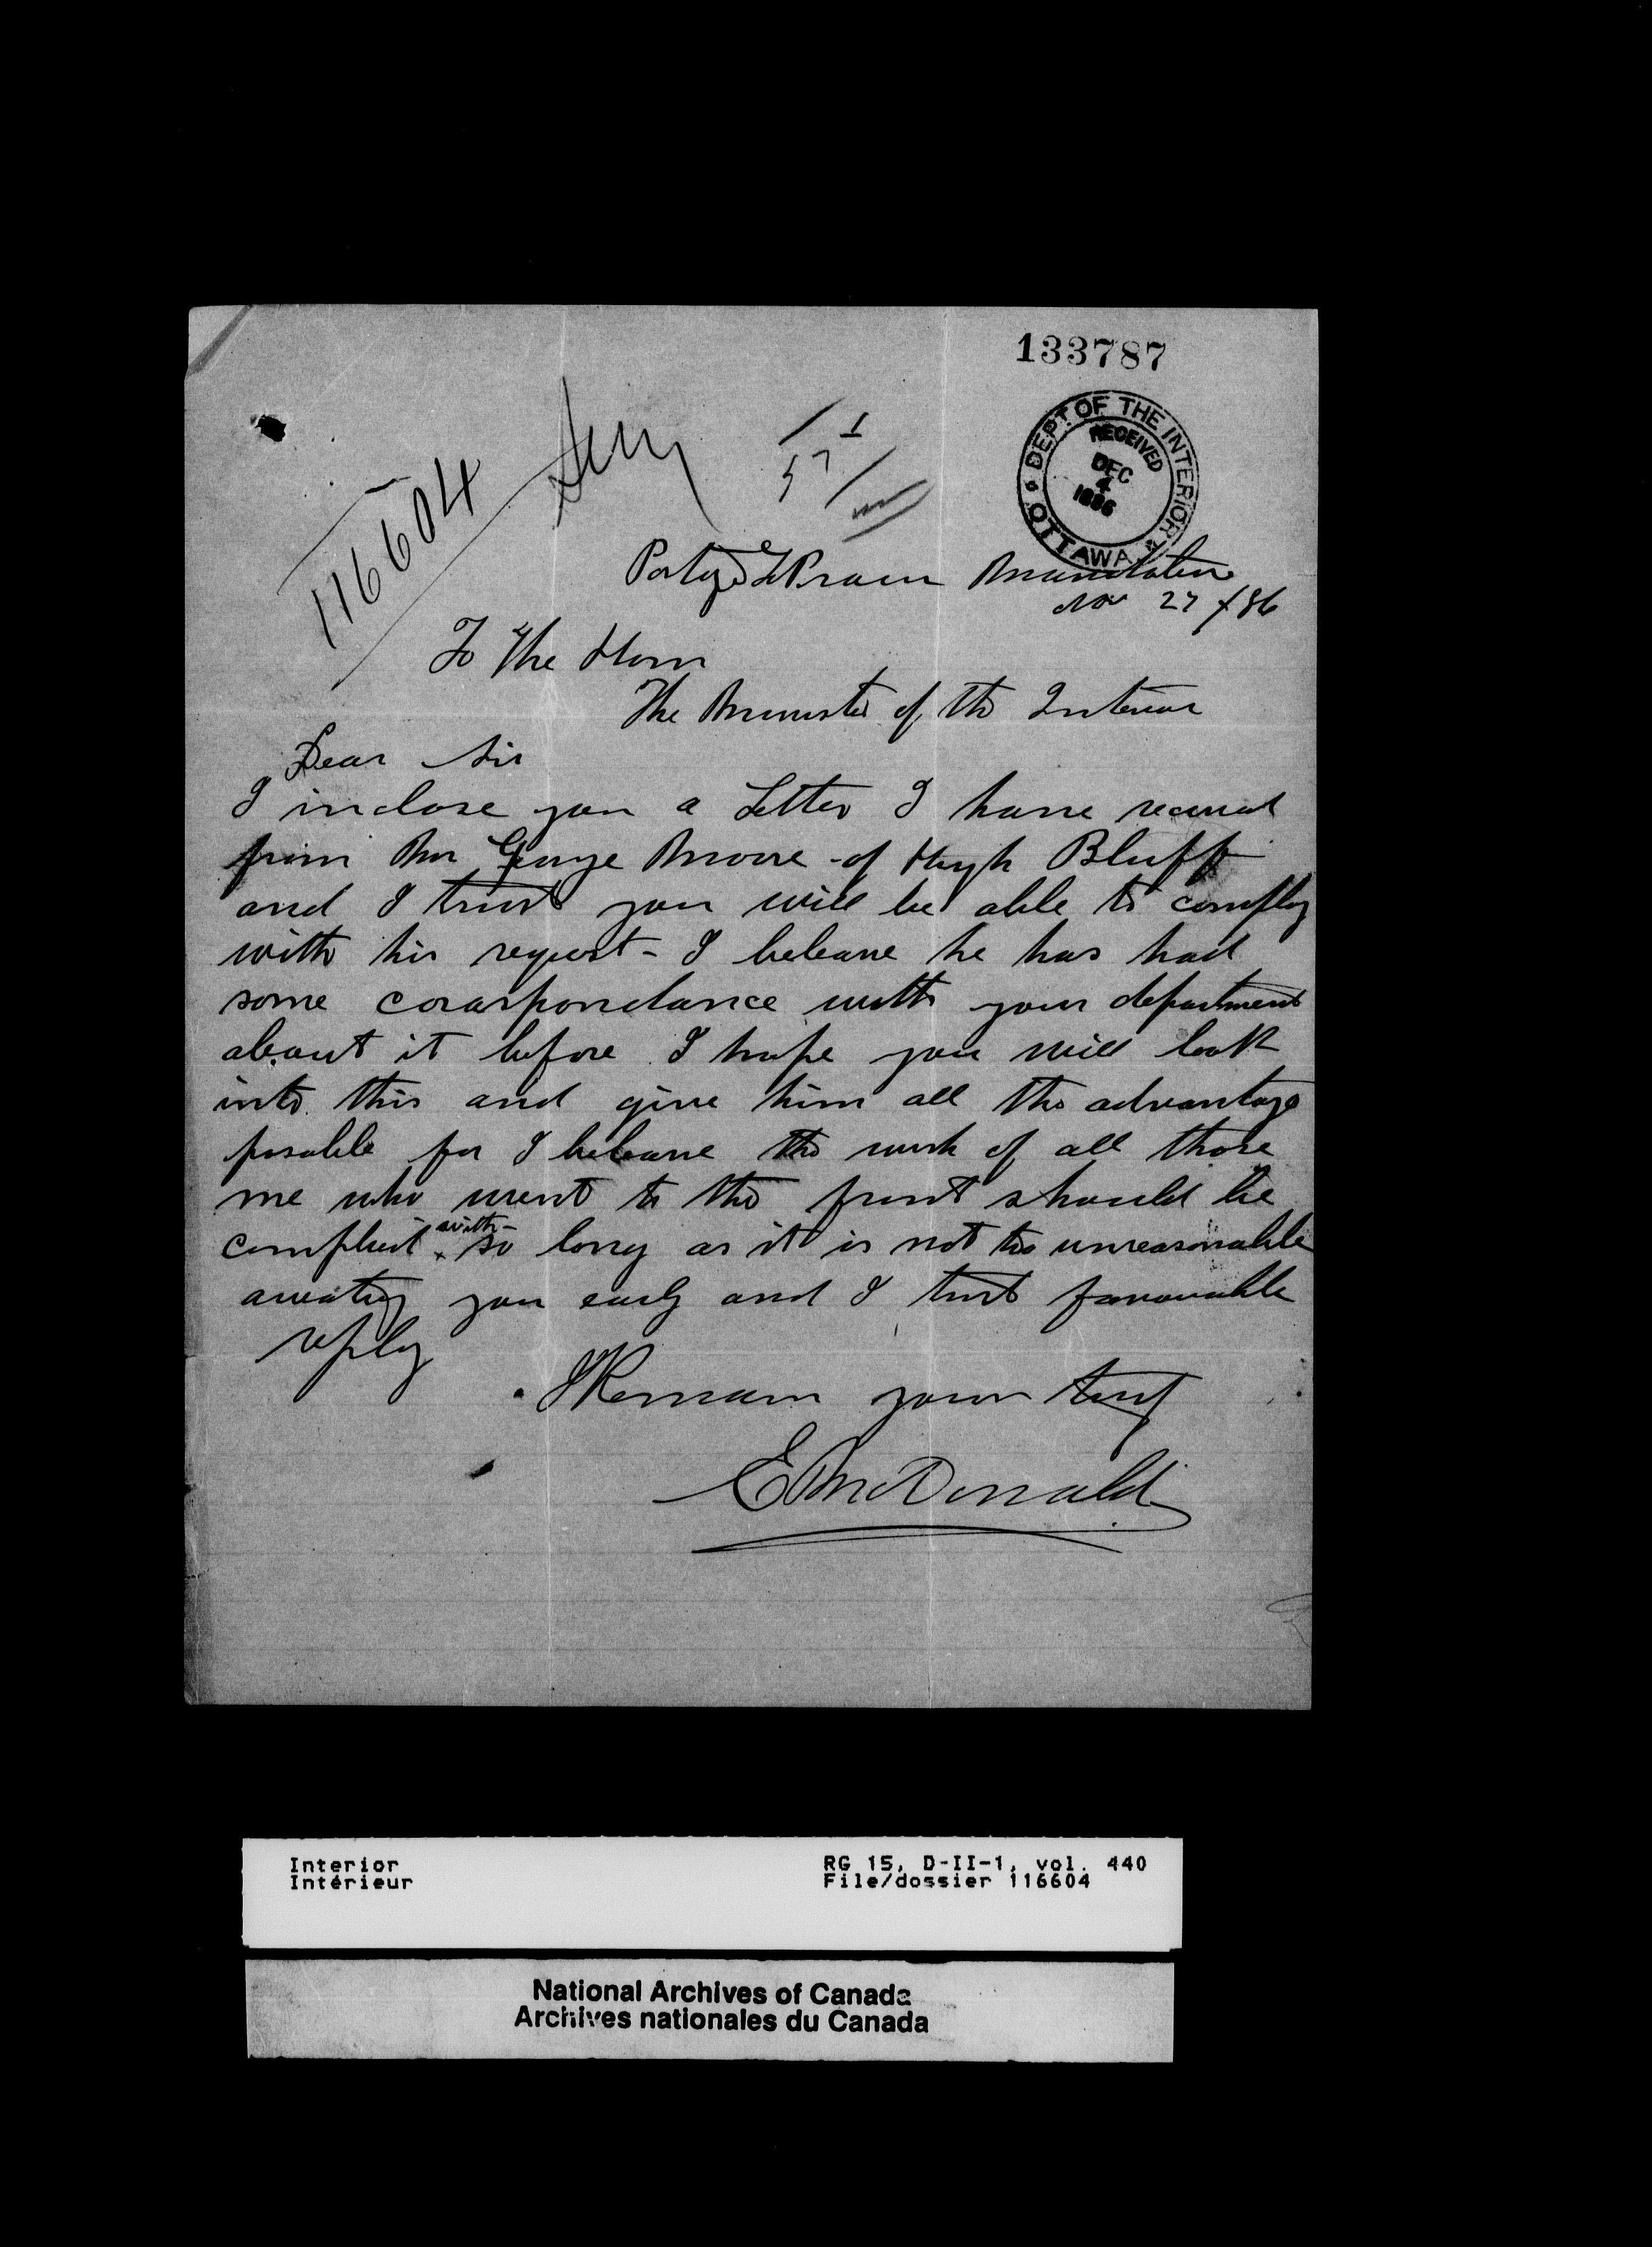 133787
DEPT OF THE INTERIOR
RECEIVED
DEC
4
1886
OTTAWA
116604
Portage LPrairie Manitoba
Nov 27 /86
To The Honr
The Minister of the Interior
Dear Sir
I inclose you a Letter I have received
from Mr George Moore of High Bluff
and I trust you will be able to comply
with his request - I beleave he has had
some corarspondance with your department
about it before I hope you will look
into this and give him all the advantage
posable for I beleave the wish of all those
me who went to the front should be
complied with so long as it is not too unreasonable
awating you early and I trust favourable
reply
I Remain yours truly
E McDonald
Interior
Intérieur
RG 15, D-II-1, vol. 440
File/dossier 116604
National Archives of Canada
Archives nationales du Canada